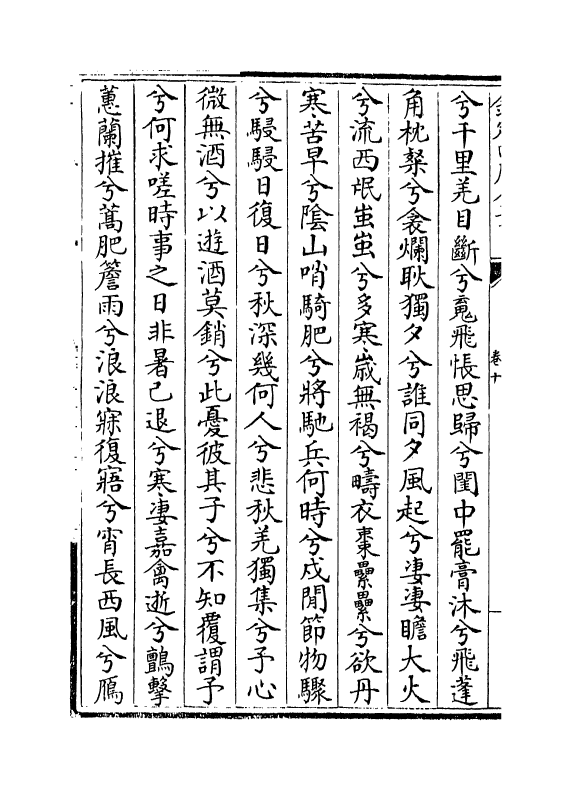 兮千里羌目斷兮䰟飛悵思歸兮閨中罷膏沐兮飛蓬
角枕粲兮衾爛耿獨夕兮誰同夕風起兮凄凄瞻大火
兮流西氓蚩蚩兮多寒歳無褐兮疇衣棗纍纍兮欲丹
寒苦早兮隂山哨騎肥兮將馳兵何時兮戍閒節物驟
兮駸駸日復日兮秋深幾何人兮悲秋羌獨集兮予心
微無酒兮以遊酒莫銷兮此憂彼其子兮不知覆謂予
兮何求嗟時事之日非暑已退兮寒凄嘉禽逝兮鸇擊
蕙蘭摧兮蒿肥簷雨兮浪浪寐復寤兮宵長西風兮鴈
卷十